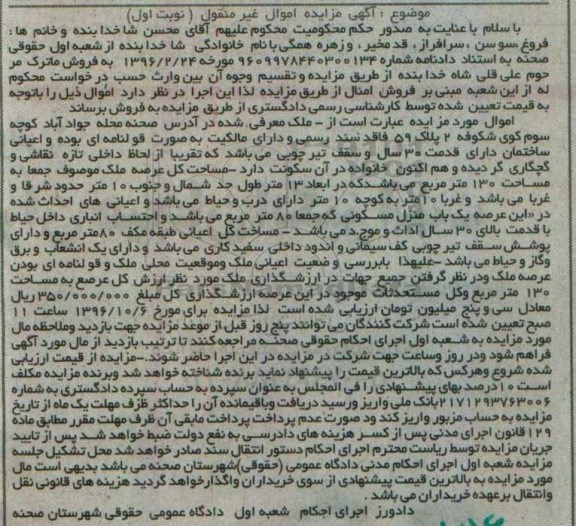 موضوع : آگهی مزایده اموال غیر منقول ( نوبت اول )
با سلام با عنایت به صدور حکم محکومیت محکوم علیهم آقای محسن شاخدا بنده و خانم ها :
فروغ ،سوسن ،سرافراز ، قد مخیر ، و زهره همگی با نام خانوادگی شاخدا بنده از شعبه اول حقوقی
صحنه به استناد دادنامه شماره ۹۶۰۹۹۷۸۴۴۰۳۰۰۱۳۴ مورخه ۱۳۹۶/۲/۲۴ به فروش ماترک مر
حوم علی قلی شاه خدا بنده از طریق مزایده و تقسیم وجوه آن بین وراث حسب در خواست محکوم
له از این شعبه مبنی بر فروش امثال از طریق مزایده لذا این اجرا در نظر دارد اموال ذیل را باتوجه
به قیمت تعیین شده توسط کارشناسی رسمی دادگستری از طریق مزایده به فروش برساند
اموال مورد مزایده عبارت است از – ملک معرفی شده در آدرس صحنه محله جواد آباد کوچه
سوم کوی شکوفه ۲ پلاک ۵۹ فاقد سند رسمی و دارای مالکیت به صورت قولنامه ای بوده و اعیانی
ساختمان دارای قدمت ۳۰ سال و سقف تیر چوبی می باشد که تقریبا از لحاظ داخلی تازه نقاشی و
گچکاری گردیده و هم اکنون خانواده در آن سکونت دارد –مساحت کل عرصه ملک موصوف جمعا به
مساحت ۱۳۰ متر مربع می باشدکه در ابعاد ۱۳ متر طول حد شمال و جنوب ۱۰ متر حدود شرقا و
غربا می باشد و غربا ۱۰متر به کوچه ۱۰ متر دارای درب و حیاط می باشد و اعیانی های احداث شده
در «این عرصه یک باب منزل مسکونی که جمعا ۸۰ متر مربع می باشد و احتساب انباری داخل حیاط
با قدمت بالای ۳۰ سال احداث و موجود می باشد – مساحت کل اعیانی طبقه مکف ۸۰متر مربع و دارای
پوشش سقف تیر چوبی کف سیمانی و اندود داخلی سفید کاری می باشد و دارای یک انشعاب و برق
وگاز و حیاط می باشد –علیهذا بابررسی و ضعیت اعیانی ملک وموقعیت محلی ملک و قولنامه ای بودن
عرصه ملک ودر نظر گرفتن جمیع جهات در ارزشگذاری ملک مورد نظر ارزش کل عرصه به مساحت
۱۳۰ متر مربع وکل مستحدثات موجود در این عرصه ارزشگذاری کل مبلغ ۳۵۰/۰۰۰/۰۰۰ ریال
معادل سی و پنج میلیون تومان ارزیابی شده است لذا مزایده برای مورخ ۱۳۹۶/۱۰/۶ ساعت ۱۱
صبح تعیین شده است شرکت کنندگان می توانند پنج روز قبل از موعد مزایده جهت بازدید وملاحظه مال
مورد مزایده به شعبه اول اجرای احکام حقوقی صحنه مراجعه کنند تا ترتیب بازدید از مال مورد آگهی
فراهم شود ودر روز وساعت جهت شرکت در مزایده در این اجرا حاضر شوند.–مزایده از قیمت ارزیابی
شده شروع وهرکس که بالاترین قیمت را پیشنهاد نماید برنده شناخته خواهد شد وبرنده مزایده مکلف
است ۱۰درصد بهای پیشنهادی را فی المجلس به عنوان سپرده به حساب سپرده دادگستری به شماره
۲۱۷۱۲۹۳۷۶۳۰۰۶بانک ملی واریز ورسید دریافت وباقیمانده آن را حداکثر ظرف مهلت یک ماه از تاریخ
مزایده به حساب مزبور واریز کند ود صورت عدم پرداخت مابقی آن ظرف مهلت مقرر مطابق ماده
۱۲۹قانون اجرای مدنی پس از کسر هزینه های دادرسی به نفع دولت ضبط خواهد شد پس از تایید
جریان مزایده توسط ریاست محترم اجرای احکام دستور انتقال سند صادر خواهد شد محل تشکیل جلسه
مزایده شعبه اول اجرای احکام مدنی دادگاه عمومی (حقوقی)شهرستان صحنه می باشد بدیهی است مال
مورد مزایده به بالاترین قیمت پیشنهادی از سوی خریداران واگذارخواهد گردید هزینه های قانونی نقل
وانتقال برعهده خریداران می باشد .
دادورز اجرای احکام شعبه اول دادگاه عمومی حقوقی شهرستان صحنه